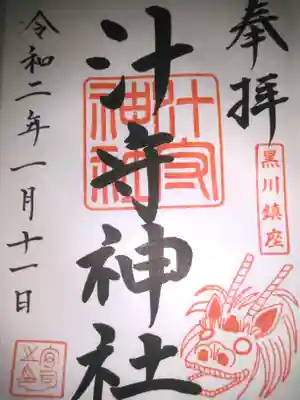 奉拝
黒川鎮座
汁守神社
汁守神社
令和二年一月十一日
宮司之印